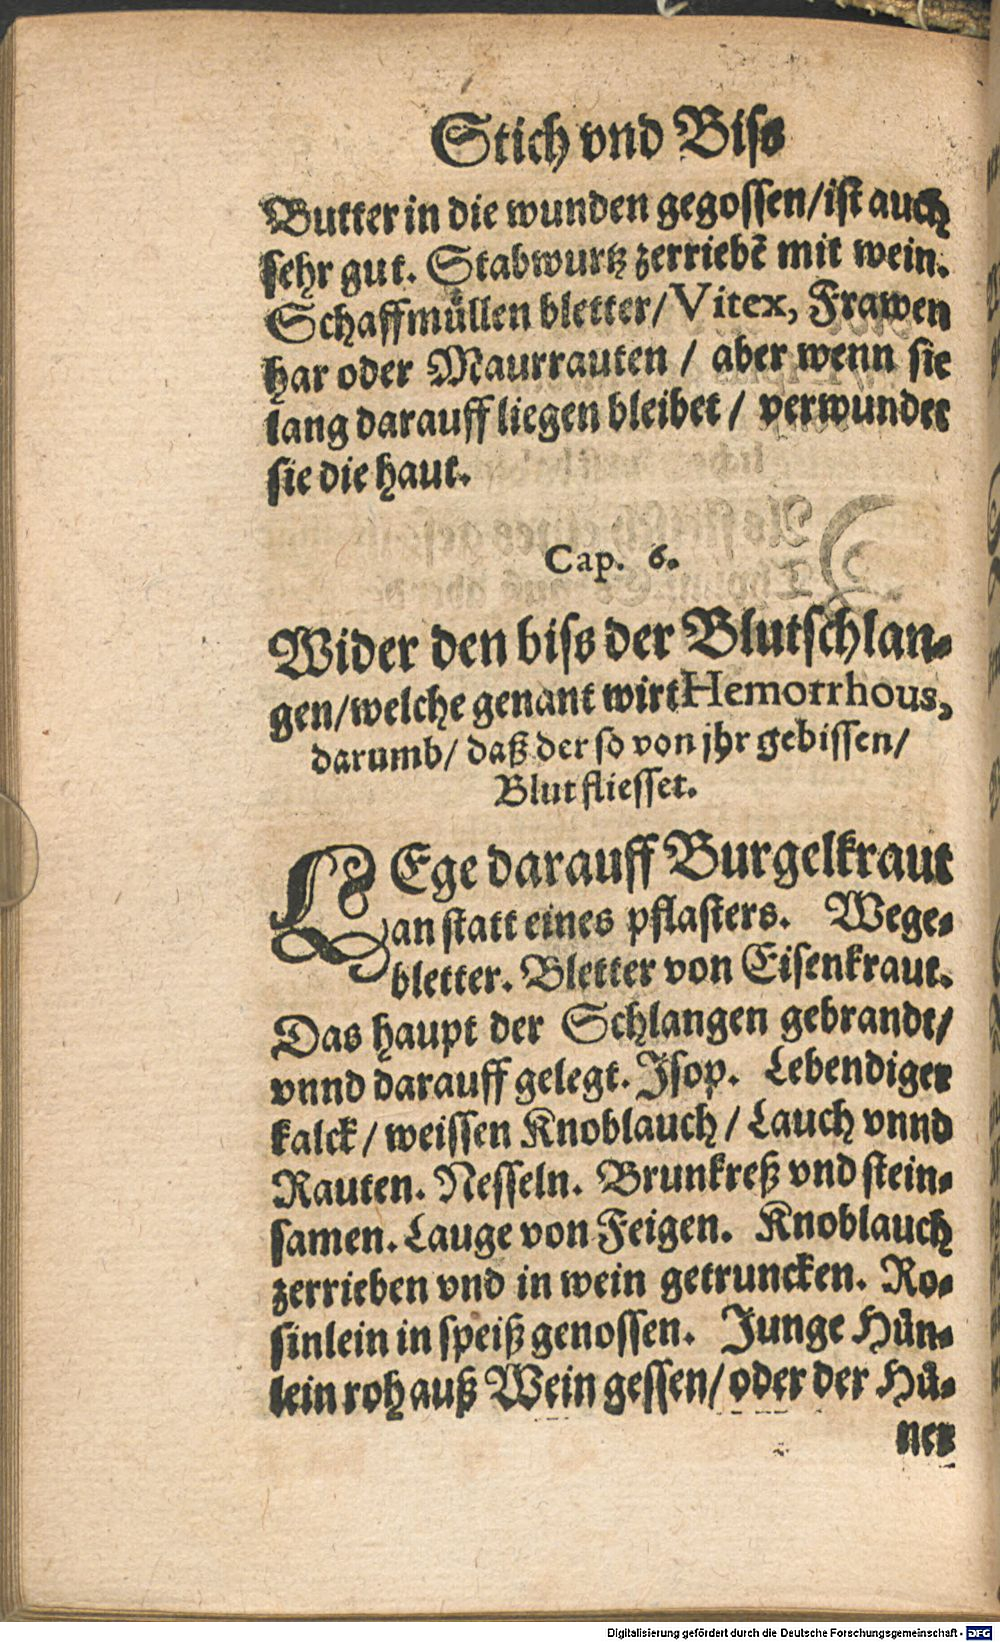 Stich vnd Biſs
Butter in die wunden gegoſſen/iſt auch
ſehr gut. Stabwurtz zerriebẽ mit wein.
Schaffmuͤllen bletter/Vitex, Frawen
har oder Maurrauten / aber wenn ſie
lang darauff liegen bleibet / verwundet
ſie die haut.
Cap. 6.
Wider den biſs der Blutſchlan⸗
gen/welche genant wirt Hemorrhous,
darumb/ daß der ſo von jhr gebiſſen/
Blut flieſſet.
LEge darauff Burgelkraut
an ſtatt eines pflaſters. Wege⸗
bletter. Bletter von Eiſenkraut.
Das haupt der Schlangen gebrandt/
vnnd darauff gelegt. Jſop. Lebendiger
kalck / weiſſen Knoblauch / Lauch vnnd
Rauten. Neſſeln. Brunkreß vnd ſtein⸗
ſamen. Lauge von Feigen. Knoblauch
zerrieben vnd in wein getruncken. Ro⸗
ſinlein in ſpeiß genoſſen. Junge Huͤn⸗
lein roh auß Wein geſſen/ oder der Huͤ⸗
ner
Digitalisierung gefördert durch die Deutsche Forschungsgemeinschaft - DFG